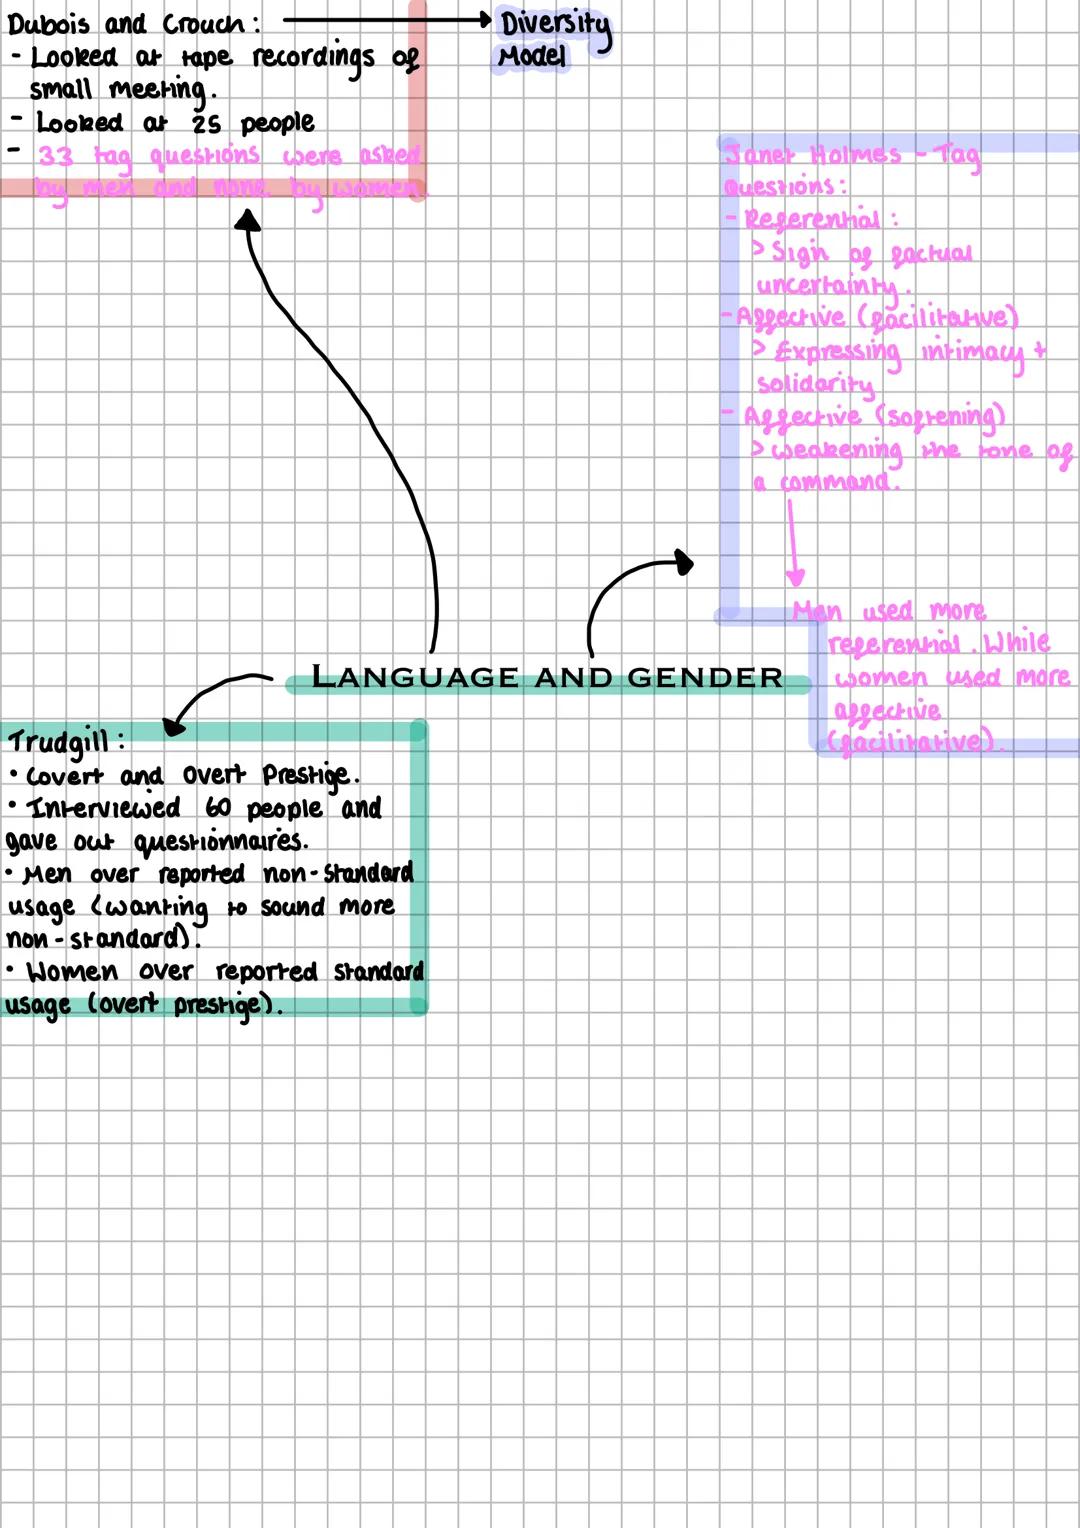 Dubois and Crouch:
- Looked at tape recordings of
small meeting.
- Looked at 25 people
- 33 tag questions were asked
by men and none by women
Diversity
Model
Janet Holmes - Tag
Questions:
- Referential:
> Sign of factual
uncertainty.
- Affective (facilitative)
> Expressing intimacy +
solidarity
- Affective (softening)
> weakening the tone of
a command.
Men used more
referential. While
women used more
affective
(facilitative).
LANGUAGE AND GENDER
Trudgill:
• Covert and Overt Prestige.
• Interviewed 60 people and
gave out questionnaires.
• Men over reported non-standard
usage (wanting to sound more
non-standard).
• Women over reported standard
usage (overt prestige).